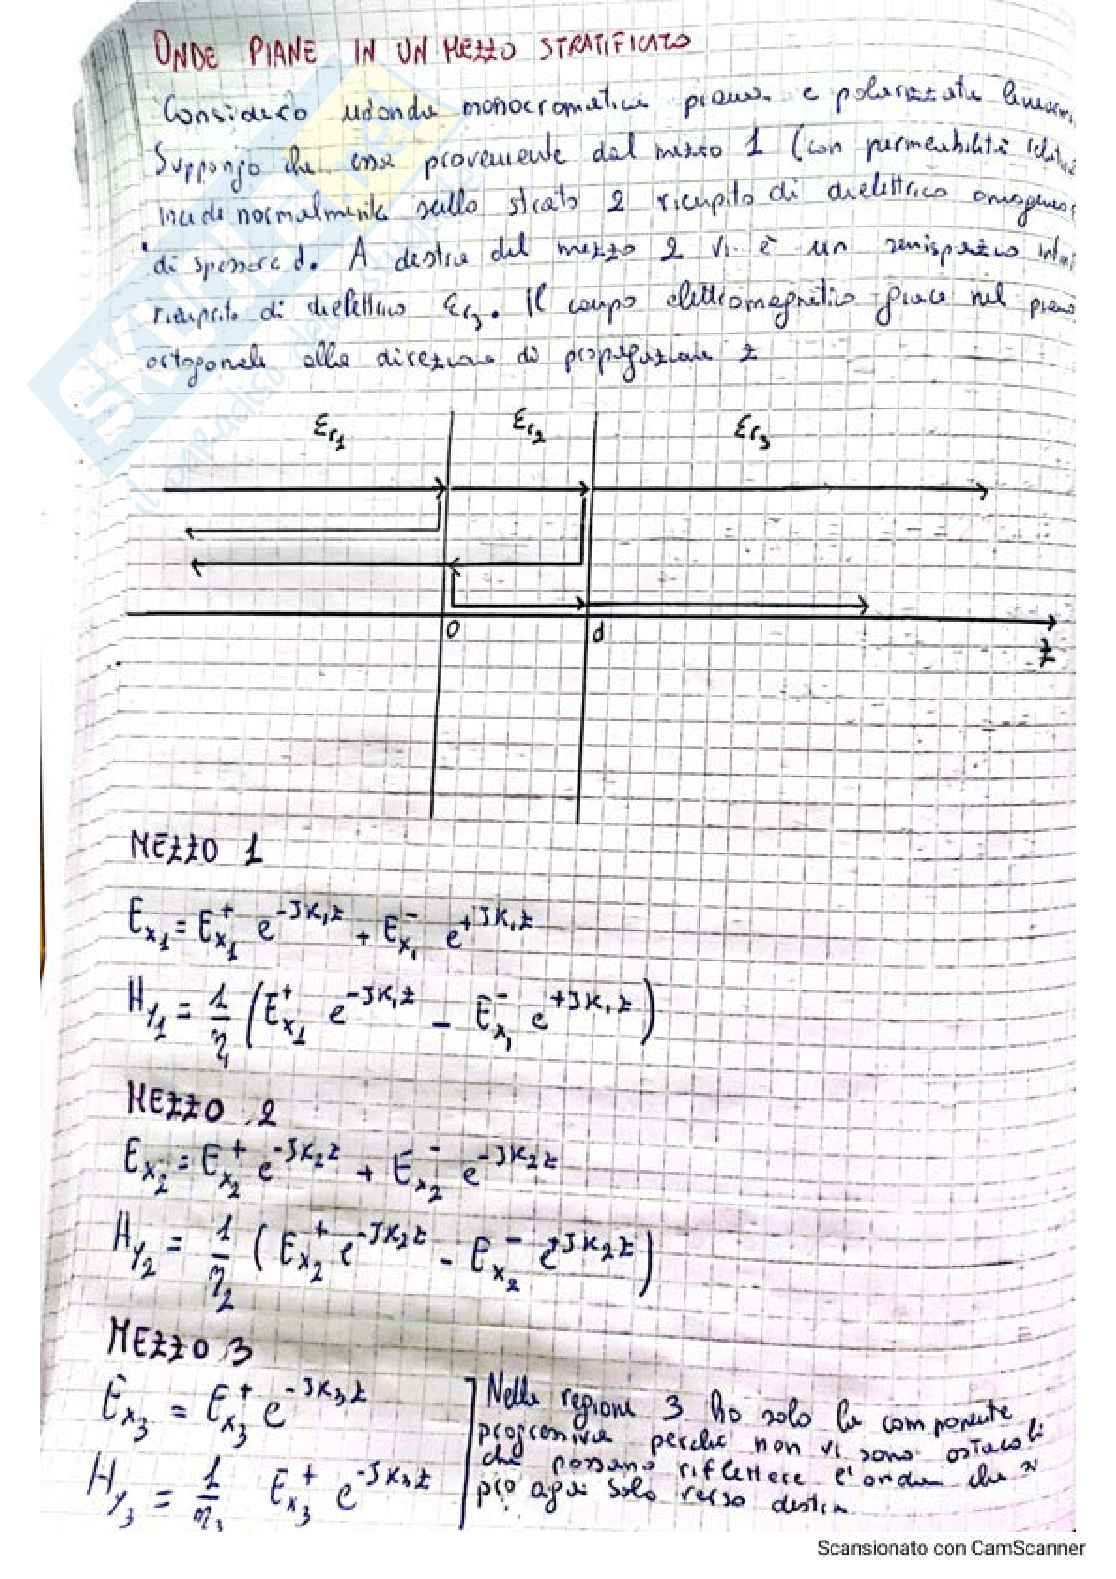 ONDE PIANE IN UN MEZZO STRATIFICATO
Considero un'onda monocromatica piana e polarizzata linearm
Suppongo che essa proveniente dal mezzo 1 (con permeabilità relativa
incide normalmente sullo strato 2 riempito di dielettrico omogeneo
di spessore d. A destra del mezzo 2 vi è un semispazio
riempito di dielettrico εr3. Il campo elettromagnetico giace nel piano
ortogonale alla direzione di propagazione z
εr1 εr2 εr3
0 d z
MEZZO 1
Ex1 = Ex1+ e^-jk1z + Ex1- e^+jk1z
Hy1 = 1/η1 (Ex1+ e^-jk1z - Ex1- e^+jk1z)
MEZZO 2
Ex2 = Ex2+ e^-jk2z + Ex2- e^-jk2z
Hy2 = 1/η2 (Ex2+ e^-jk2z - Ex2- e^jk2z)
MEZZO 3
Ex3 = Ex3+ e^-jk3z
Hy3 = 1/η3 Ex3+ e^-jk3z
Nella regione 3 ho solo la componente
progressiva perché non vi sono ostacoli
che possano riflettere l'onda che si
propaga solo verso destra
Scansionato con CamScanner